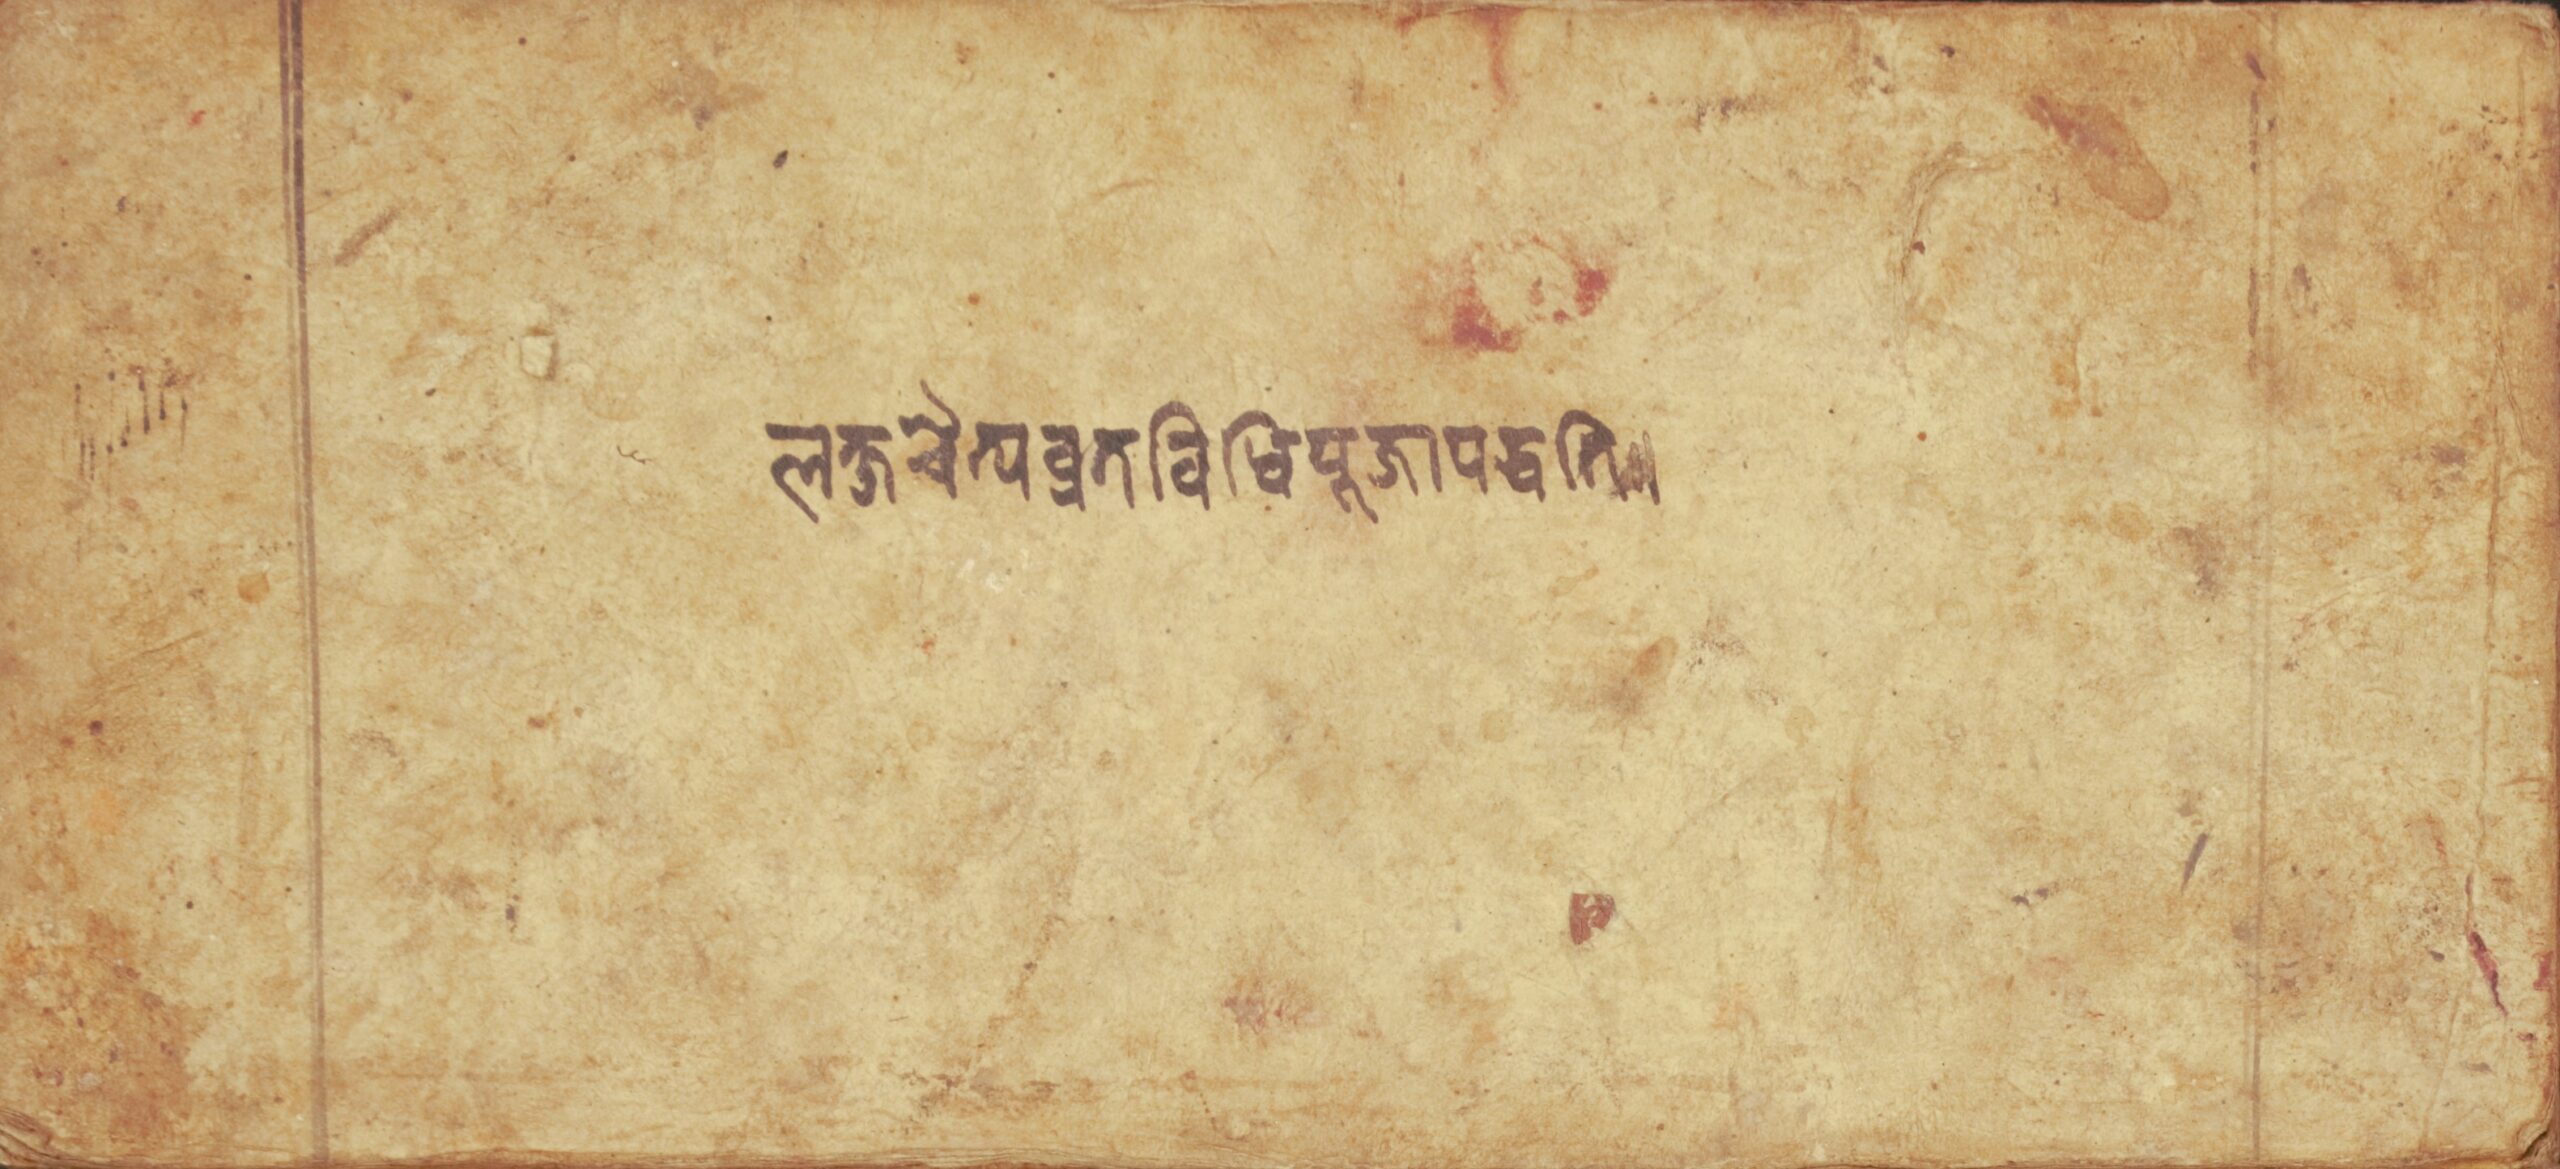 लक्षचैत्यव्रतविधिपूजापद्धति॥